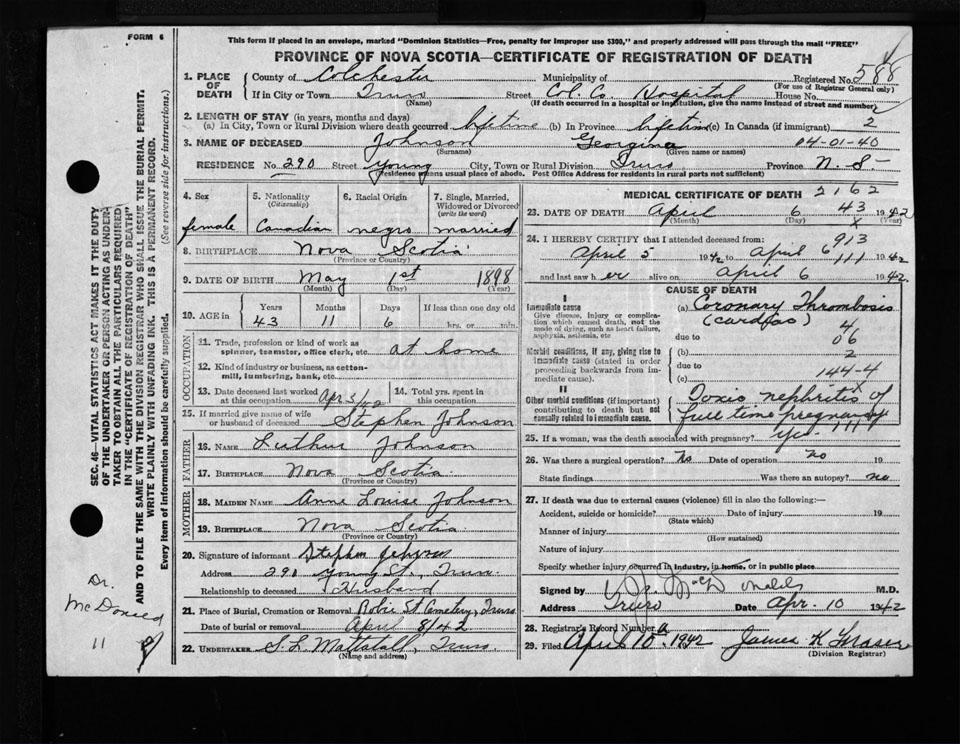 FORM 6
This form if placed in an envelope, marked "Dominion Statistics—Free, penalty for improper use $300," and properly addressed will pass through the mail "FREE"
PROVINCE OF NOVA SCOTIA—CERTIFICATE OF REGISTRATION OF DEATH
1. PLACE OF DEATH County of Colchester Municipality of Registered No. 588
(For use of Registrar General only)
If in City or Town Truro Street Col. Co. Hospital House No.
(Name) (If death occurred in a hospital or institution, give the name instead of street and number)
2. LENGTH OF STAY (in years, months and days)
(a) In City, Town or Rural Division where death occurred lifetime (b) In Province lifetime (c) In Canada (if immigrant) 2
3. NAME OF DECEASED Johnson Georgina 04-01-40
(Surname) (Given name or names)
RESIDENCE No. 290 Street Young City, Town or Rural Division Truro Province N.S.
(Residence means usual place of abode. Post Office Address for residents in rural parts not sufficient)
4. Sex 5. Nationality (Citizenship) 6. Racial Origin 7. Single, Married, Widowed or Divorced (write the word)
female Canadian negro married
8. BIRTHPLACE Nova Scotia
(Province or Country)
9. DATE OF BIRTH May 1st 1898
(Month) (Day) (Year)
10. AGE in Years Months Days If less than one day old
43 11 6 hrs. or min.
OCCUPATION
11. Trade, profession or kind of work as spinner, teamster, office clerk, etc. at home
12. Kind of industry or business, as cotton-mill, lumbering, bank, etc.
13. Date deceased last worked at this occupation Apr 3/42 14. Total yrs. spent in this occupation
15. If married give name of wife or husband of deceased Stephen Johnson
FATHER
16. NAME Luther Johnson
17. BIRTHPLACE Nova Scotia
(Province or Country)
MOTHER
18. MAIDEN NAME Anne Louise Johnson
19. BIRTHPLACE Nova Scotia
(Province or Country)
20. Signature of informant Stephen Johnson
Address 290 Young St., Truro
Relationship to deceased Husband
21. Place of Burial, Cremation or Removal Robie St. Cemetery, Truro
Date of burial or removal April 8/42
22. UNDERTAKER S. L. Mattatall, Truro
(Name and address)
MEDICAL CERTIFICATE OF DEATH 2162
23. DATE OF DEATH April 6 43 1942
(Month) (Day) X (Year)
24. I HEREBY CERTIFY that I attended deceased from: 913
April 5 1942 to April 6 111 1942
and last saw her alive on April 6 1942.
CAUSE OF DEATH
I
Immediate cause (a) Coronary Thrombosis
Give disease, injury or complication which caused death, not the mode of dying, such as heart failure, asphyxia, asthenia, etc (cardiac) 4
due to 06
Morbid conditions, if any, giving rise to immediate cause (stated in order proceeding backwards from immediate cause). (b) 2
due to 144-4
(c) X
II
Other morbid conditions (if important) contributing to death but not causally related to immediate cause. Toxic nephritis of full time pregnancy
25. If a woman, was the death associated with pregnancy? yes 111
26. Was there a surgical operation? No Date of operation no 19
State findings Was there an autopsy? no
27. If death was due to external causes (violence) fill in also the following:—
Accident, suicide or homicide? Date of injury 19
(State which)
Manner of injury
(How sustained)
Nature of injury
Specify whether injury occurred in industry, in home, or in public place
Signed by M.D.
Address Truro Date Apr. 10 1942
28. Registrar's Record Number
29. Filed April 10 1942 James K Fraser
(Division Registrar)
SEC. 46—VITAL STATISTICS ACT MAKES IT THE DUTY
OF THE UNDERTAKER OR PERSON ACTING AS UNDER-
TAKER TO OBTAIN ALL THE PARTICULARS REQUIRED
IN THE "CERTIFICATE OF REGISTRATION OF DEATH"
AND TO FILE THE SAME WITH THE DIVISION REGISTRAR WHO SHALL ISSUE THE BURIAL PERMIT.
WRITE PLAINLY WITH UNFADING INK. THIS IS A PERMANENT RECORD.
Every item of Information should be carefully supplied. (See reverse side for instructions.)
Dr.
McDonald
11